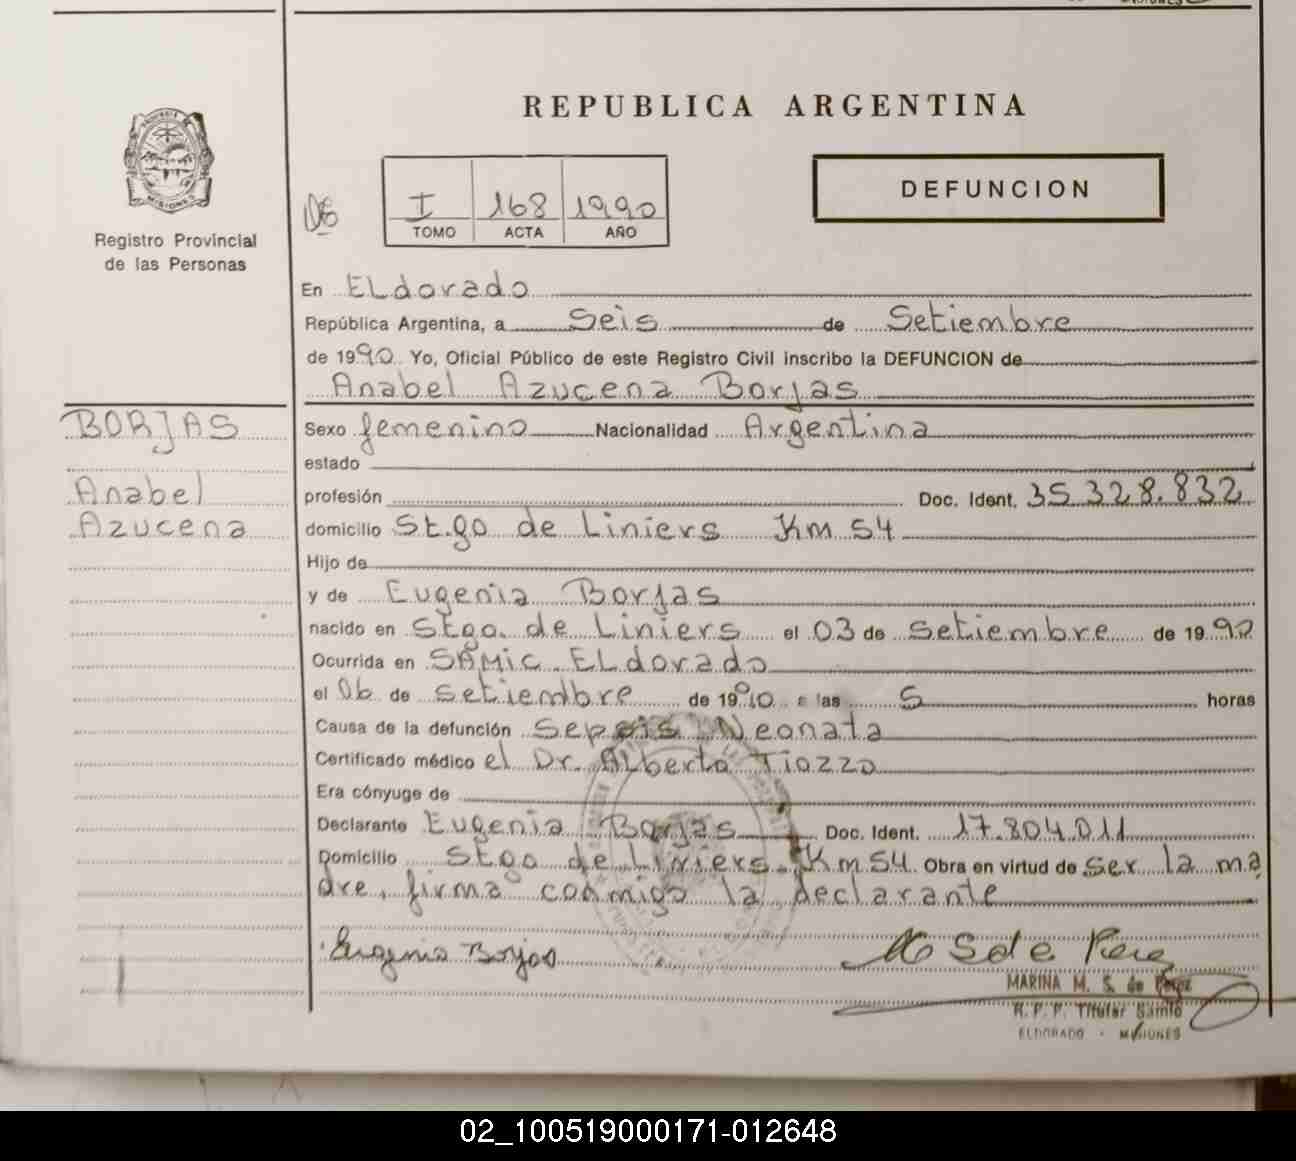 REPUBLICA ARGENTINA
MISIONES
Registro Provincial
de las Personas
I 168 1990
TOMO ACTA AÑO
DEFUNCION
En Eldorado
República Argentina, a Seis de Setiembre
de 1990 Yo, Oficial Público de este Registro Civil inscribo la DEFUNCION de
Anabel Azucena Borjas
BORJAS
Anabel
Azucena
Sexo femenino Nacionalidad Argentina
estado
profesión Doc. Ident. 35.328.832
domicilio St.go de Liniers Km 54
Hijo de
y de Eugenia Borjas
nacido en Stgo. de Liniers el 03 de Setiembre de 1990
Ocurrida en SAMIC ELdorado
el 06 de setiembre de 1990 a las 5 horas
Causa de la defunción Sepsis Neonata
Certificado médico el Dr. Alberto Tiozzo
Era cónyuge de
Declarante Eugenia Borjas Doc. Ident. 17.804.011
Domicilio Stgo de Liniers. Km 54 Obra en virtud de ser la ma
dre, firma conmigo la declarante
Eugenia Borjas
M S de Perez
MARINA M. S. de Perez
R. P. P. Titular Samic
ELDORADO - MISIONES
02_100519000171-012648